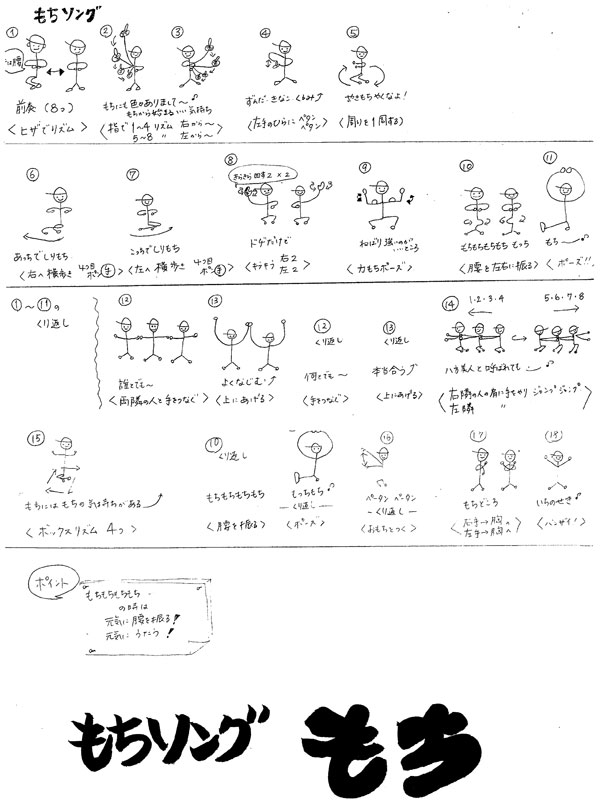 もちソング
① ② ③ ④ ⑤
前奏（8つ）
もちにも色々ありまして〜
もちから始まる… 気持ち
ずんだ・きなこ くるみ
やきもちやくなよ！
〈ヒザでリズム〉
〈指で1〜4 リズム 右から〜
5〜8 〃 左から〜〉
〈左手のひらに ペタンペタン〉
〈周りを1周する〉
⑥ ⑦ ⑧ ⑨ ⑩ ⑪
きらきら 四本2×2
あっちでしりもち
こっちでしりもち
ドヂだけど
ねばり強いのが…ところ
もちもちもちもち もっち
もち〜
〈右へ横歩き 4つ目ポン㊥〉
〈左へ横歩き 4つ目ポン㊥〉
〈キラキラ 右2 左2〉
〈力もちポーズ〉
〈腰を左右に振る〉
〈ポーズ!!〉
①〜⑪の
くり返し
⑫ ⑬ ⑫ ⑬ ⑭
くり返し くり返し
1・2・3・4
5・6・7・8
誰とでも〜
よくなじむ
何とでも〜
本も合う
八方美人と呼ばれても…
〈両隣の人と手をつなぐ〉
〈上にあげる〉
〈手をつなぐ〉
〈上にあげる〉
〈右隣の人の肩に手をやり ジャンプジャンプ
左隣 〃 〉
⑮ ⑩ ⑯ ⑰ ⑱
くり返し
もちにはもちの気持ちがある
もちもちもちもち
もっちもち
ーくり返しー
ペータン ペータン
ーくり返しー
もちどころ
いちのせき
〈ボックスリズム 4つ〉
〈腰を振る〉
〈ポーズ〉
〈おもちをつく〉
〈右手→胸へ
左手→胸へ〉
〈バンザイ！〉
ポイント
もちもちもちもち
の時は
元気に腰を振る！
元気にうたう！
もちソング もち